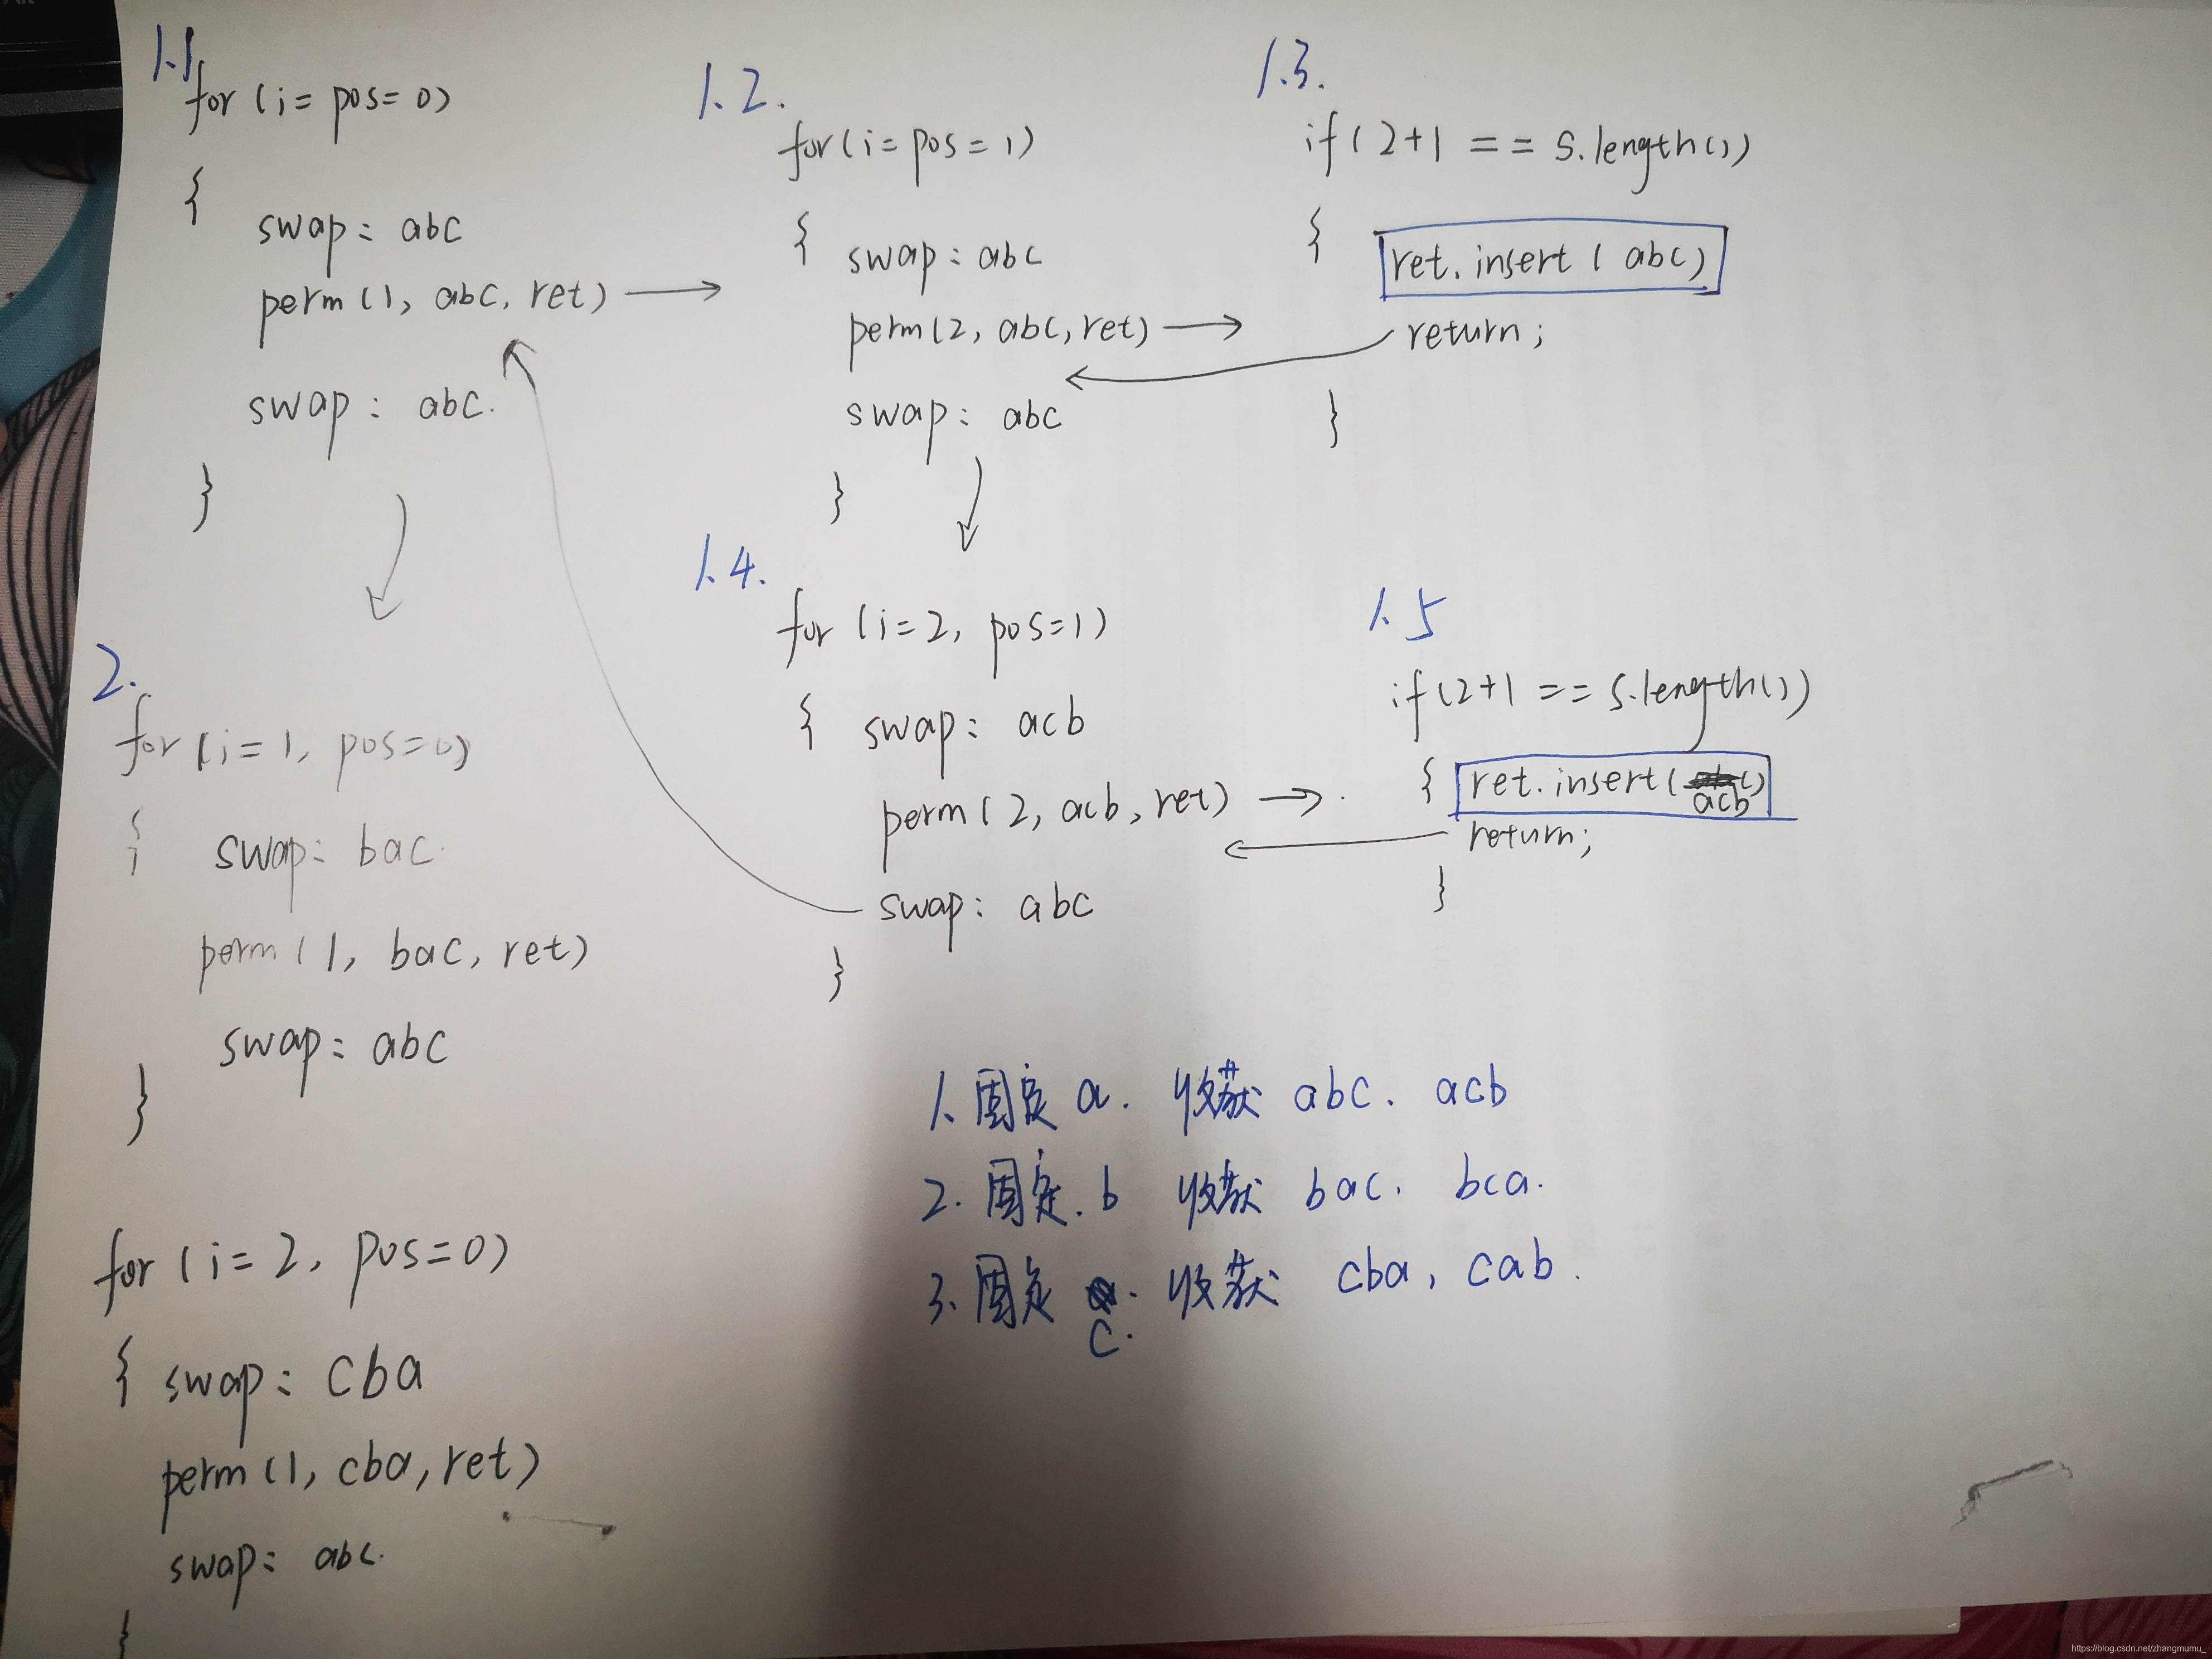 1.1
for (i = pos = 0)
{
swap: abc
perm (1, abc, ret)
swap: abc.
}
1.2.
for (i = pos = 1)
{
swap: abc
perm (2, abc, ret)
swap: abc
}
1.3.
if (2+1 == s.length())
{
ret.insert (abc)
return;
}
1.4.
for (i=2, pos=1)
{ swap: acb
perm (2, acb, ret)
swap: abc
}
1.5
if (2+1 == s.length())
{ ret.insert(acb)
return;
}
2.
for (i=1, pos=0)
{
swap: bac
perm (1, bac, ret)
swap: abc
}
for (i=2, pos=0)
{ swap: cba
perm (1, cba, ret)
swap: abc.
}
1. 固定 a. 收获 abc. acb
2. 固定. b 收获 bac. bca.
3. 固定 c. 收获 cba, cab.
https://blog.csdn.net/zhangmumu_